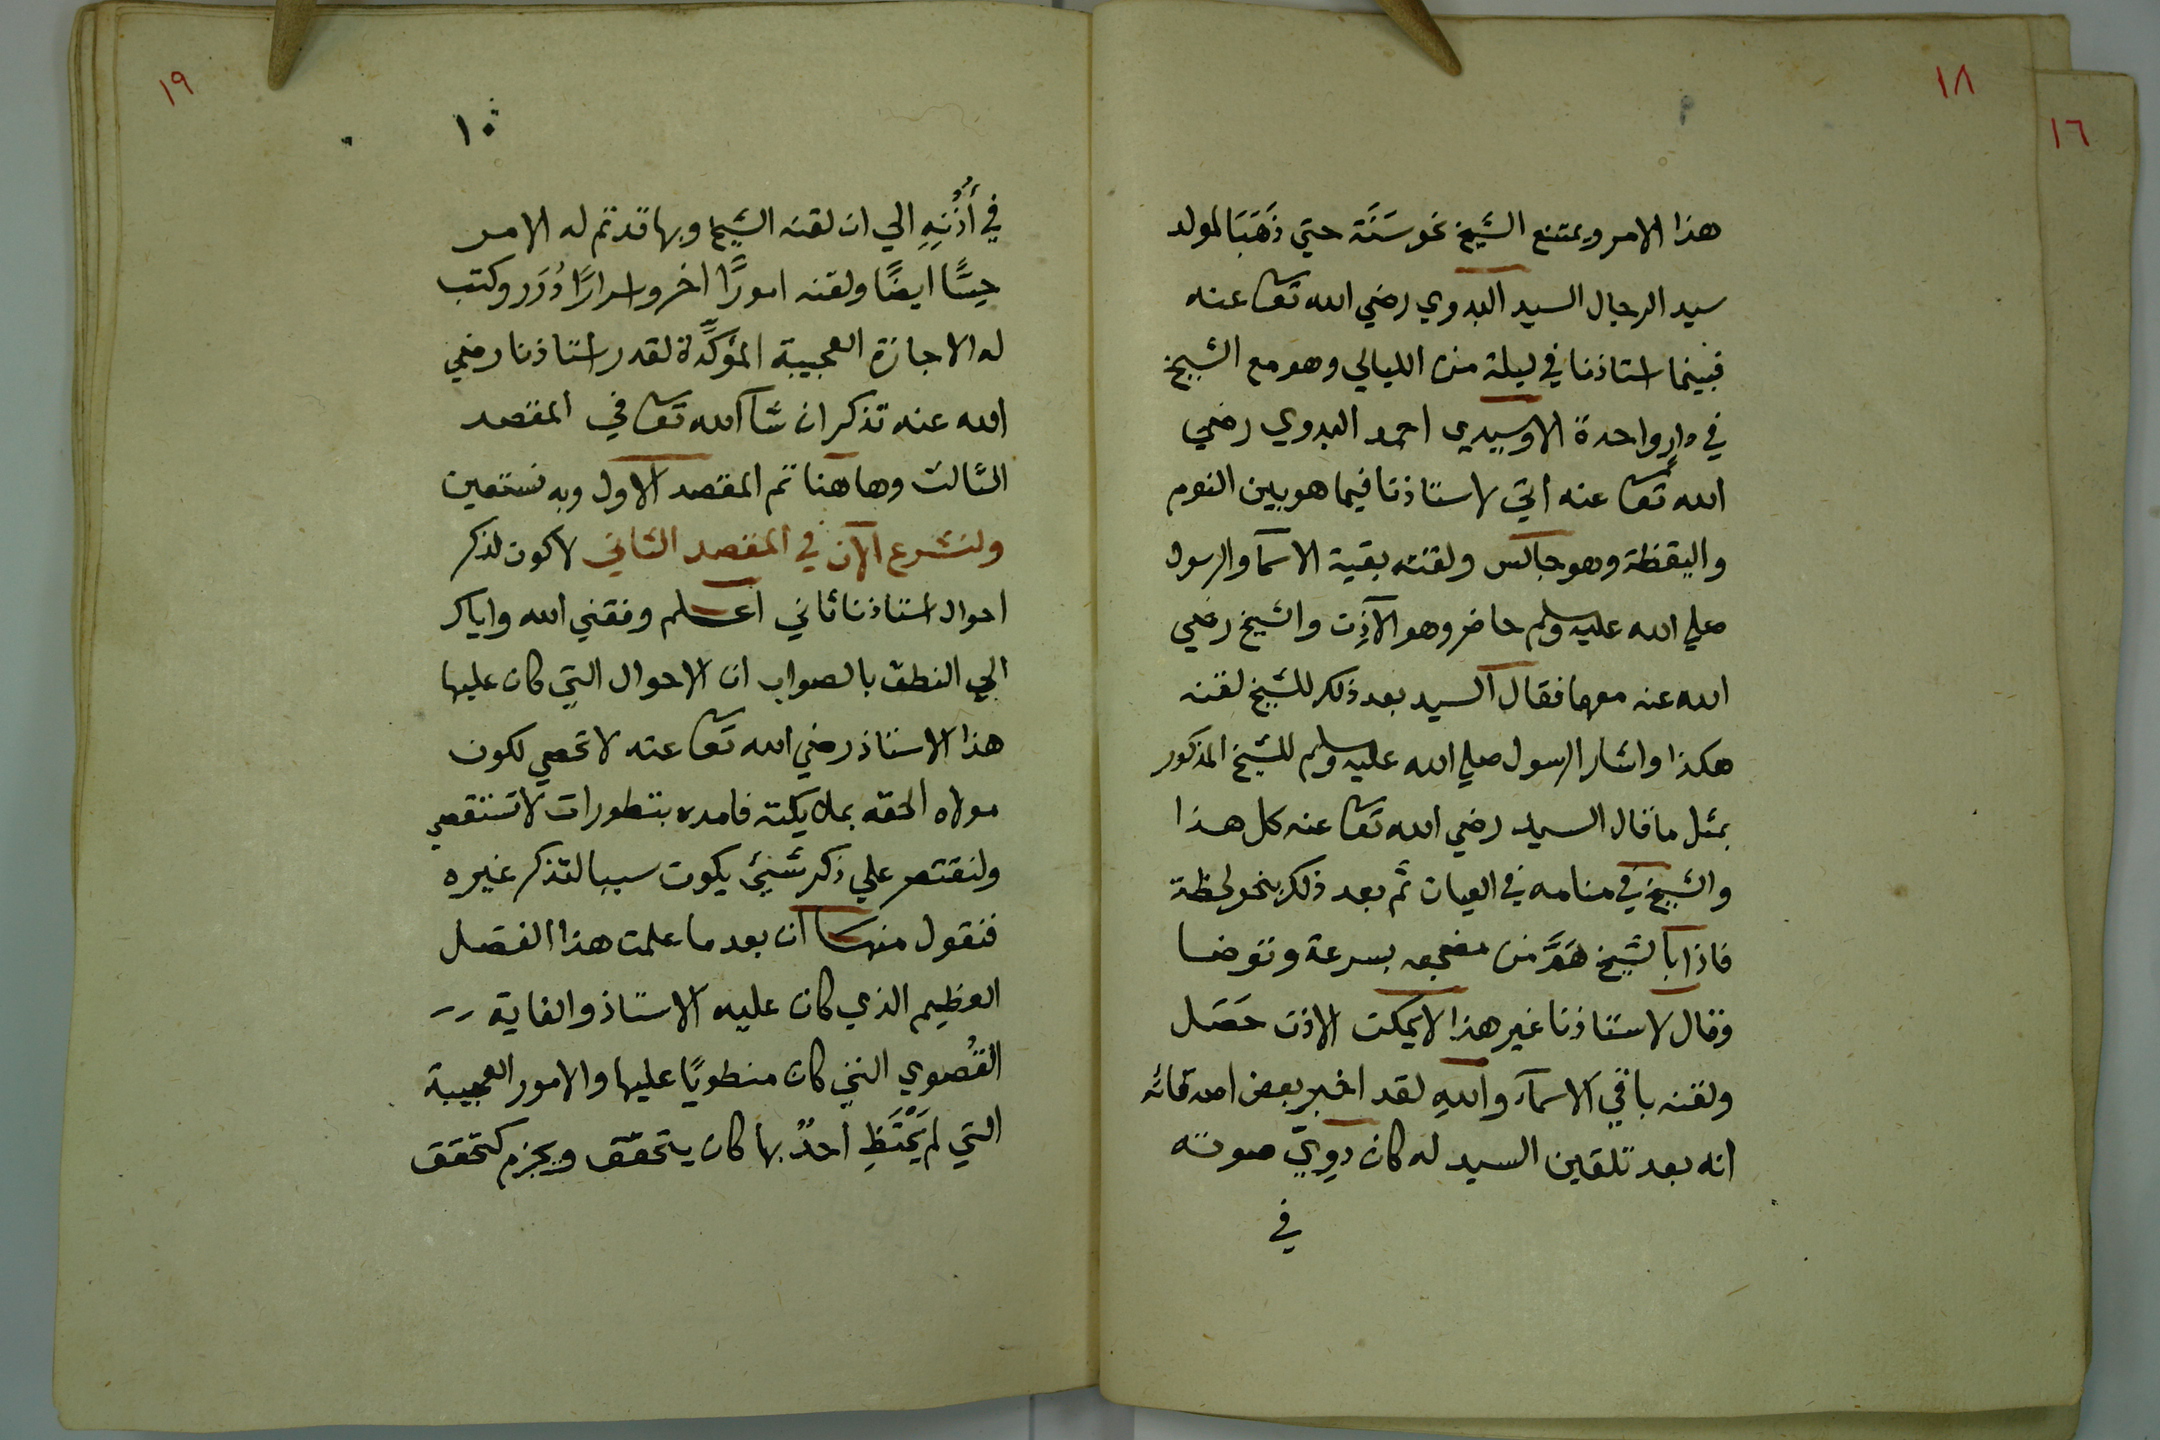 ١٦
١٨
هذا الامر ويمتنع الشيخ نحو سَنَة حتي ذَهَبَا لمولد
سيد الرجال السيد البدوي رضي الله تعا عنه
فبينما استاذنا في ليلة من الليالي وهو مع الشيخ
في دارٍ واحدة الا وسيدي احمد البدوي رضي
الله تعا عنه اتي لاستاذنا فيما هو بين النوم
واليقظة وهو جالس ولقنه بقية الاسمآ والرسول
صلي الله عليه وسلم حاضر وهو الآذِن والشيخ رضي
الله عنه معهما فقال السيد بعد ذلك للشيخ لقنه
هكذا واشار الرسول صلي الله عليه وسلم للشيخ المذكور
بمثل ما قال السيد رضي الله تعا عنه كل هذا
والشيخ في منامه في العيان ثم بعد ذلك بنحو لحظة
فاذا بالشيخ هَبَّ من مضجعه بسرعة وتوضا
وقال لاستاذنا غير هذا لا يمكن الاذن حَصَل
ولقنه باقي الاسمآء واللهِ لقد اخبر بعض اصدقائه
انه بعد تلقين السيد له كان دوِيّ صوته
في
١٩
١٠
في أُذُنِهِ الي ان لقنه الشيخ وبها قد تم له الامر
حِسًّا ايضًا ولقنه امورًا اخر واسرارًا دُرَر وكتب
له الاجازة العجيبة المؤكَّدة لقدر استاذنا رضي
الله عنه تذكر ان شآ الله تعا في المقصد
الثالث وهاهنا تم المقصد الاول وبه نستعين
ولنشرع الآن في المقصد الثاني لاكون لذكر
احوال استاذنا ثاني اعلم وفقني الله واياك
الي النطق بالصواب ان الاحوال التي كان عليها
هذا الاستاذ رضي الله تعا عنه لا تحصي لكون
مولاه الحقه بملايكته فامده بتطورات لا تستقصي
ولنقتصر علي ذكر شيئ يكون سببا لتذكر غيره
فنقول منها ان بعد ما علمت هذا الفضل
العظيم الذي كان عليه الاستاذ والغاية
القُصوي التي كان منطويًا عليها والامور العجيبة
التي لم يَحْتَظِ أحدٌ بها كان يتحقق ويجزم كتحقق